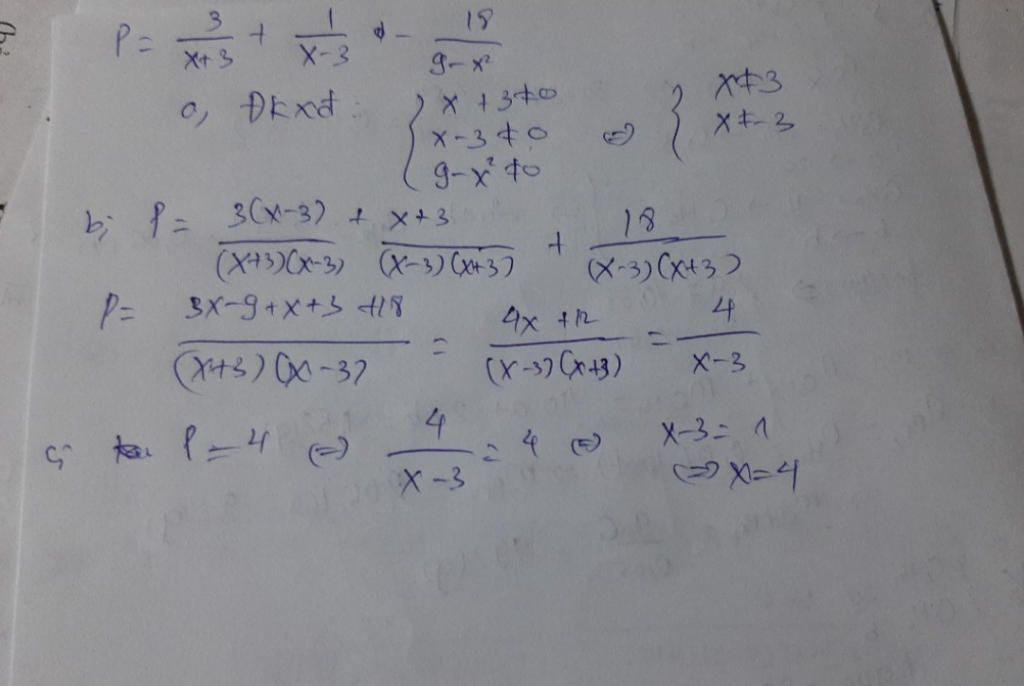 P = 3/(x+3) + 1/(x-3) - 18/(9-x²)
a, Đkxđ: { x+3≠0
x-3≠0
9-x²≠0 <=> { x≠3
x≠-3
b; P = 3(x-3)/((x+3)(x-3)) + x+3/((x-3)(x+3)) + 18/((x-3)(x+3))
P = 3x-9+x+3+18/((x+3)(x-3)) = 4x+12/((x-3)(x+3)) = 4/(x-3)
c; P=4 <=> 4/(x-3) = 4 <=> x-3=1
<=> x=4